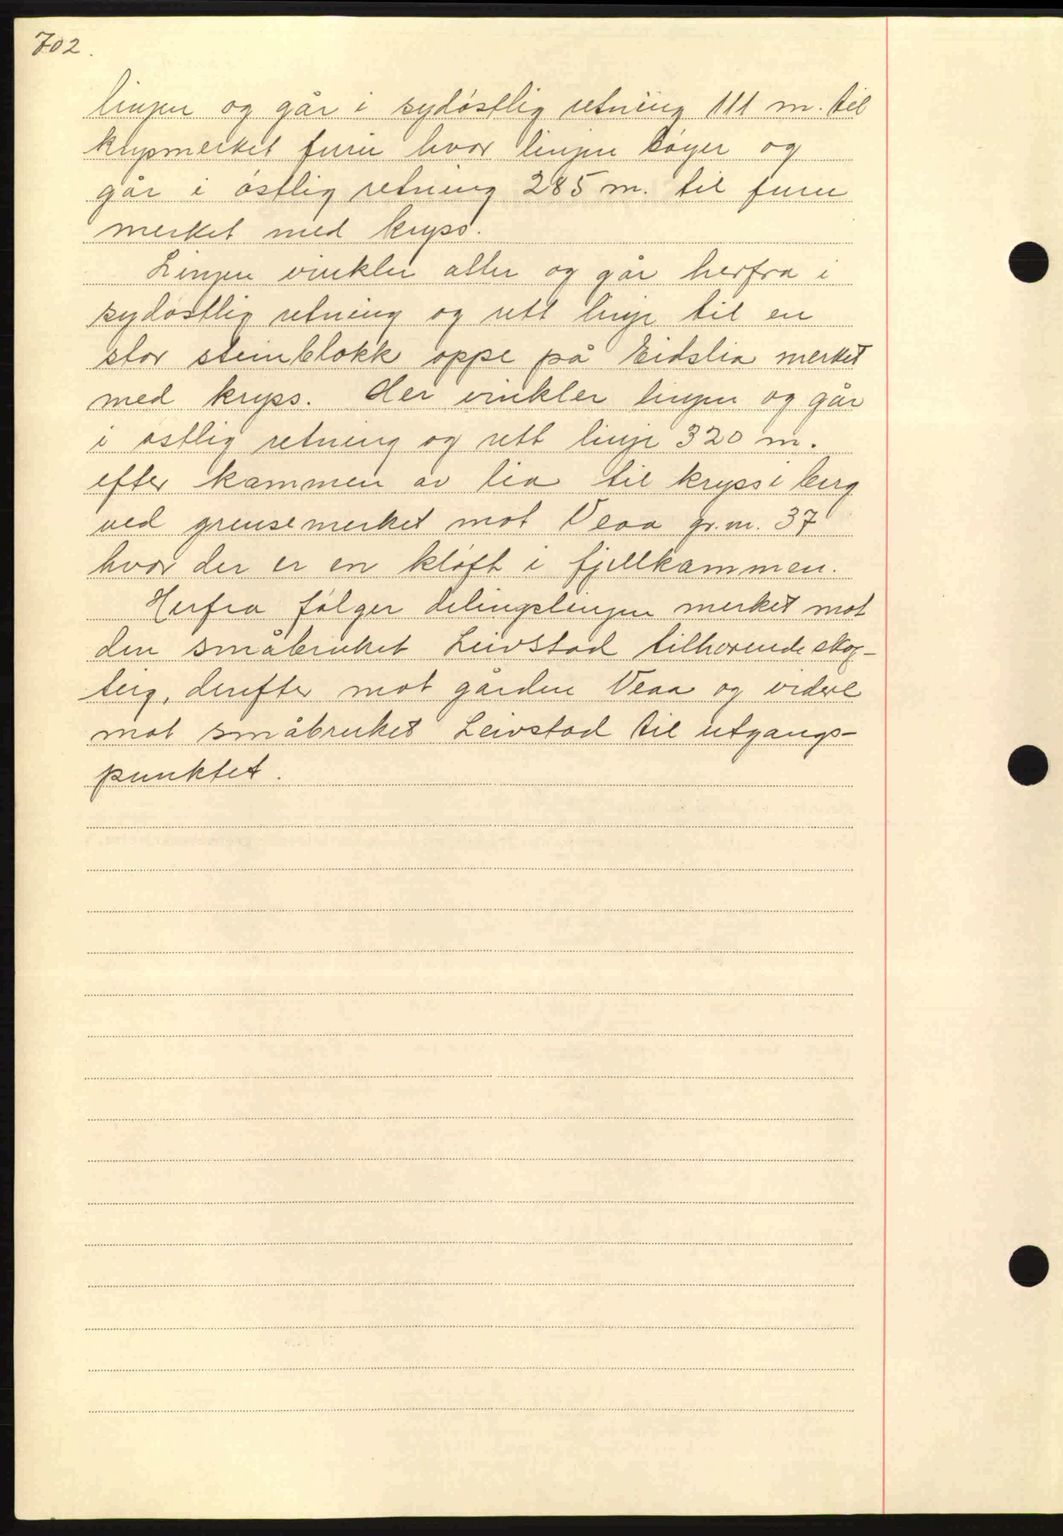 702.
linjen og går i sydøstlig retning 111 m. til
kryssmerket furu hvor linjen bøyer og
går i østlig retning 285 m. til furu
merket med kryss.
Linjen vinkler atter og går herfra i
sydøstlig retning og rett linje til en
stor steinblokk oppe på Eidslia merket
med kryss. Her vinkler linjen og går
i østlig retning og rett linje 320 m.
efter kammen av lia til kryss i berg
ved grensemerket mot Veaa gr. nr. 37
hvor der er en kløft i fjellkammen.
Herfra følger delingslinjen merket mot
den småbruket Leivstad tilhørende skog-
teig, derefter mot gården Veaa og videre
mot småbruket Leivstad til utgangs-
punktet.